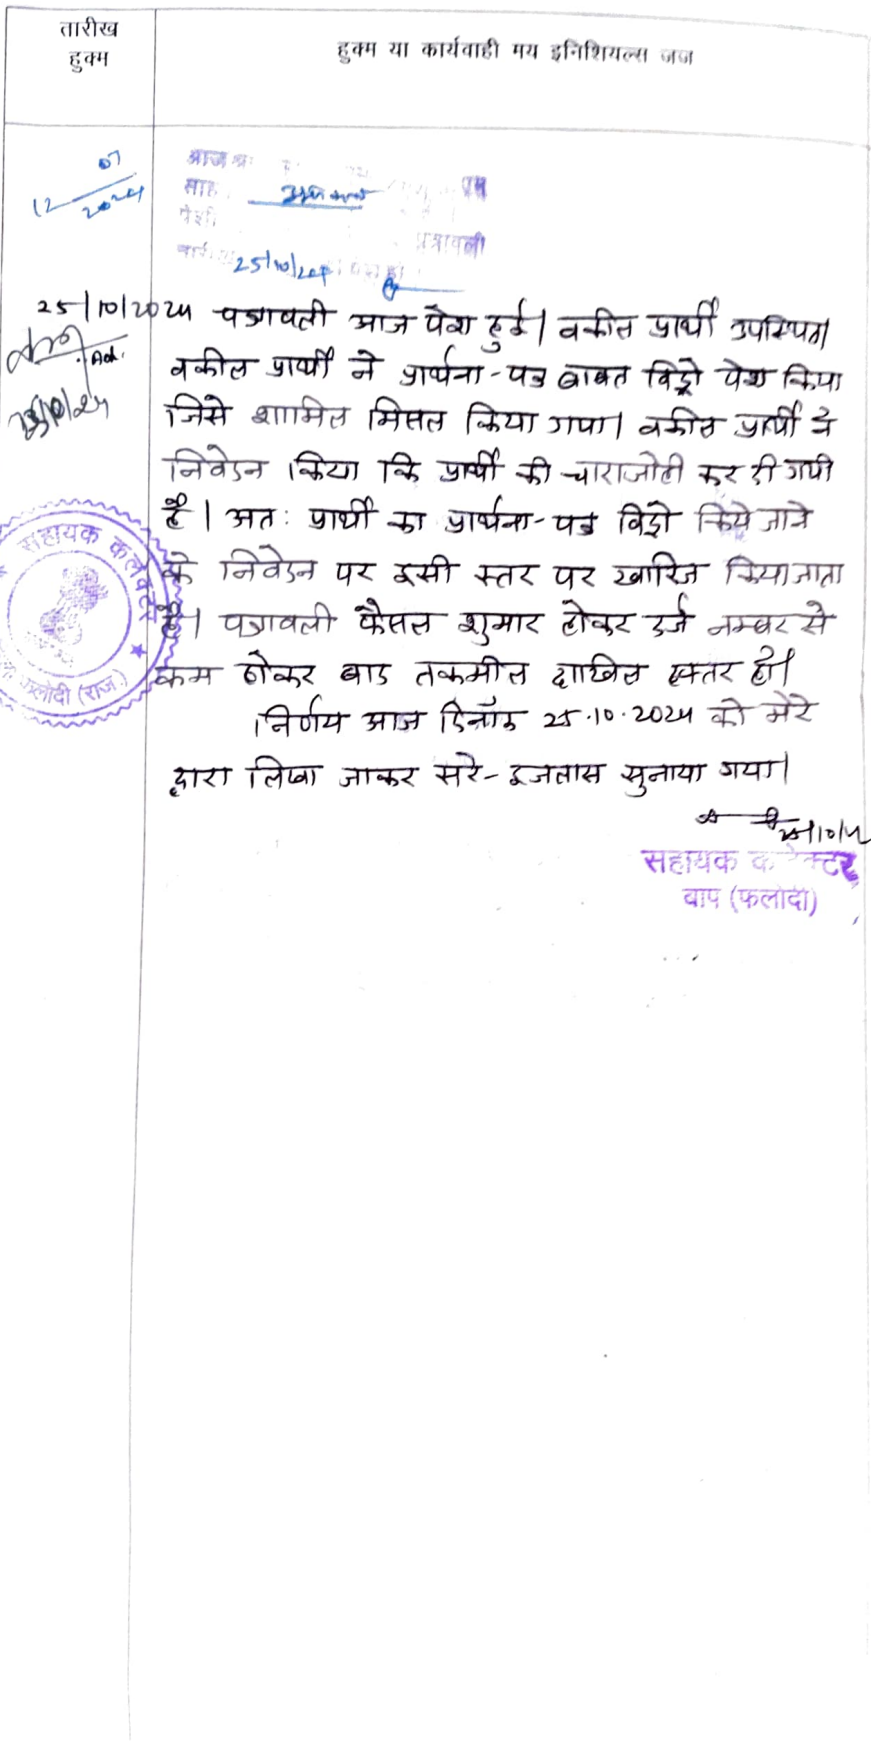 तारीख
हुक्म
हुक्म या कार्यवाही मय इनिशियल्स जज
12 07 2024
आज
साह
पेशी
पत्रावली
25/10/24
25/10/2024 पत्रावली आज पेश हुई। वकील प्रार्थी उपस्थित।
वकील प्रार्थी ने प्रार्थना-पत्र बाबत विड्रो पेश किया
जिसे शामिल मिसल किया गया। वकील प्रार्थी ने
निवेदन किया कि प्रार्थी की चाराजोही कर दी गयी
है। अतः प्रार्थी का प्रार्थना-पत्र विड्रो किये जाने
के निवेदन पर इसी स्तर पर खारिज किया जाता
है। पत्रावली फैसल शुमार होकर दर्ज नम्बर से
कम होकर बाद तकमील दाखिल दफ्तर हो।
निर्णय आज दिनाँक 25.10.2024 को मेरे
द्वारा लिखा जाकर सरे-इजलास सुनाया गया।
Adv.
25/10/24
सहायक कलेक्टर
फलोदी (राज.)
25/10/24
सहायक कलेक्टर
बाप (फलोदी)